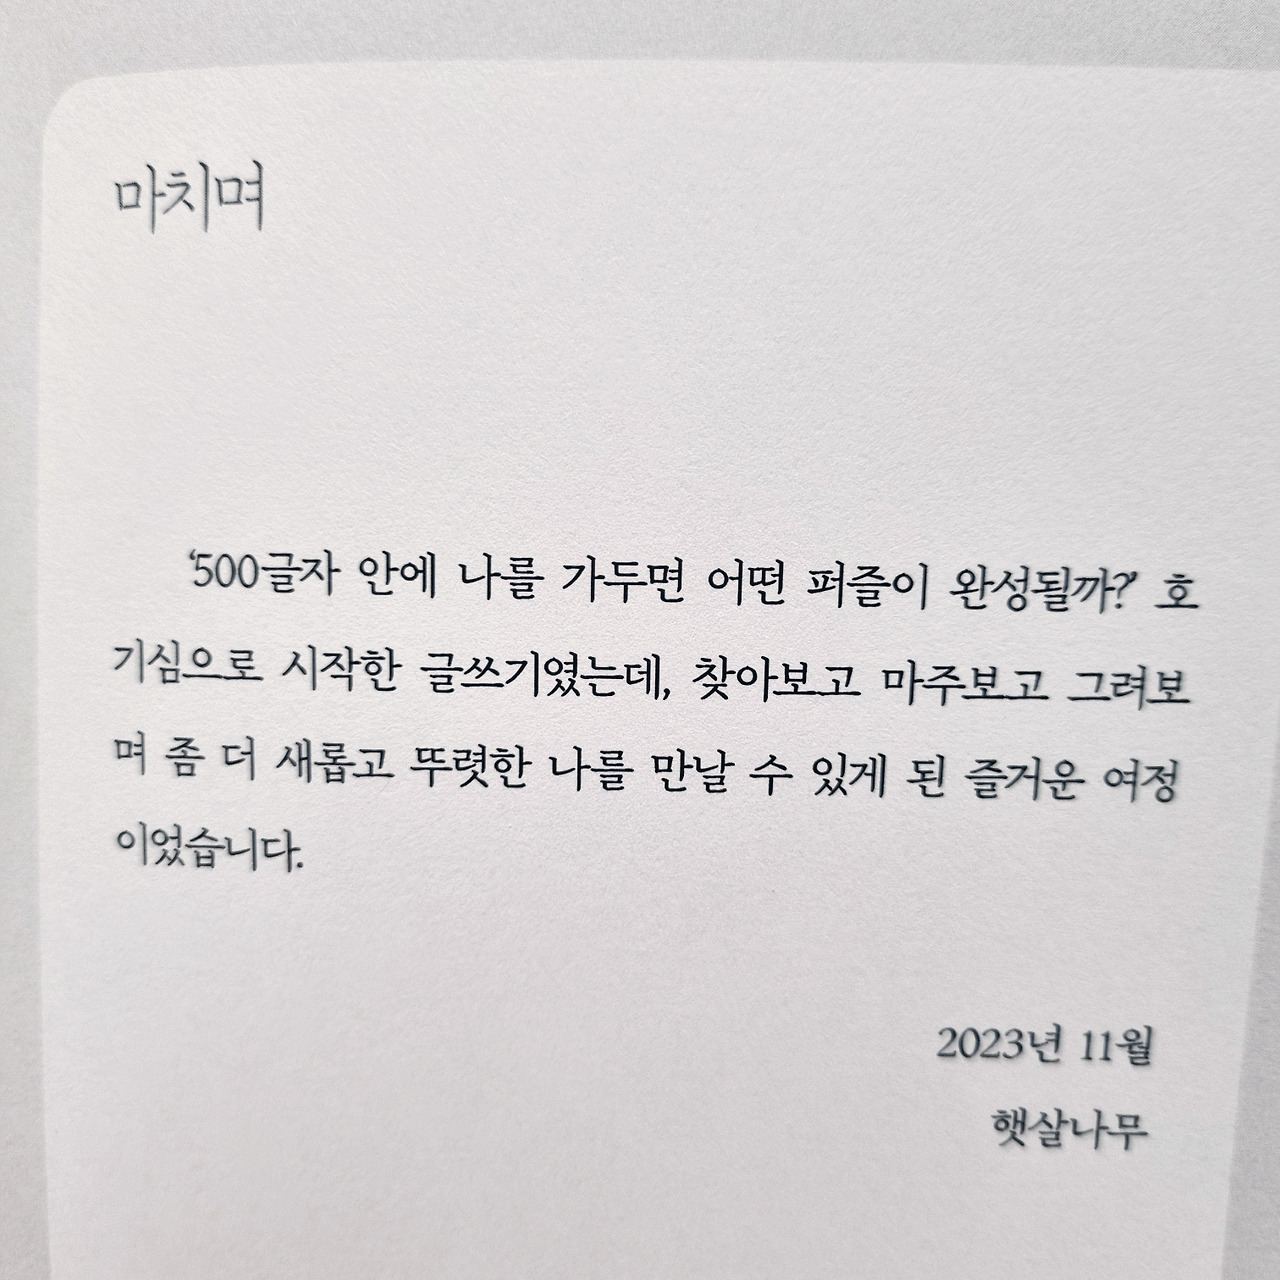 마치며
‘500글자 안에 나를 가두면 어떤 퍼즐이 완성될까?’ 호
기심으로 시작한 글쓰기였는데, 찾아보고 마주보고 그려보
며 좀 더 새롭고 뚜렷한 나를 만날 수 있게 된 즐거운 여정
이었습니다.
2023년 11월
햇살나무